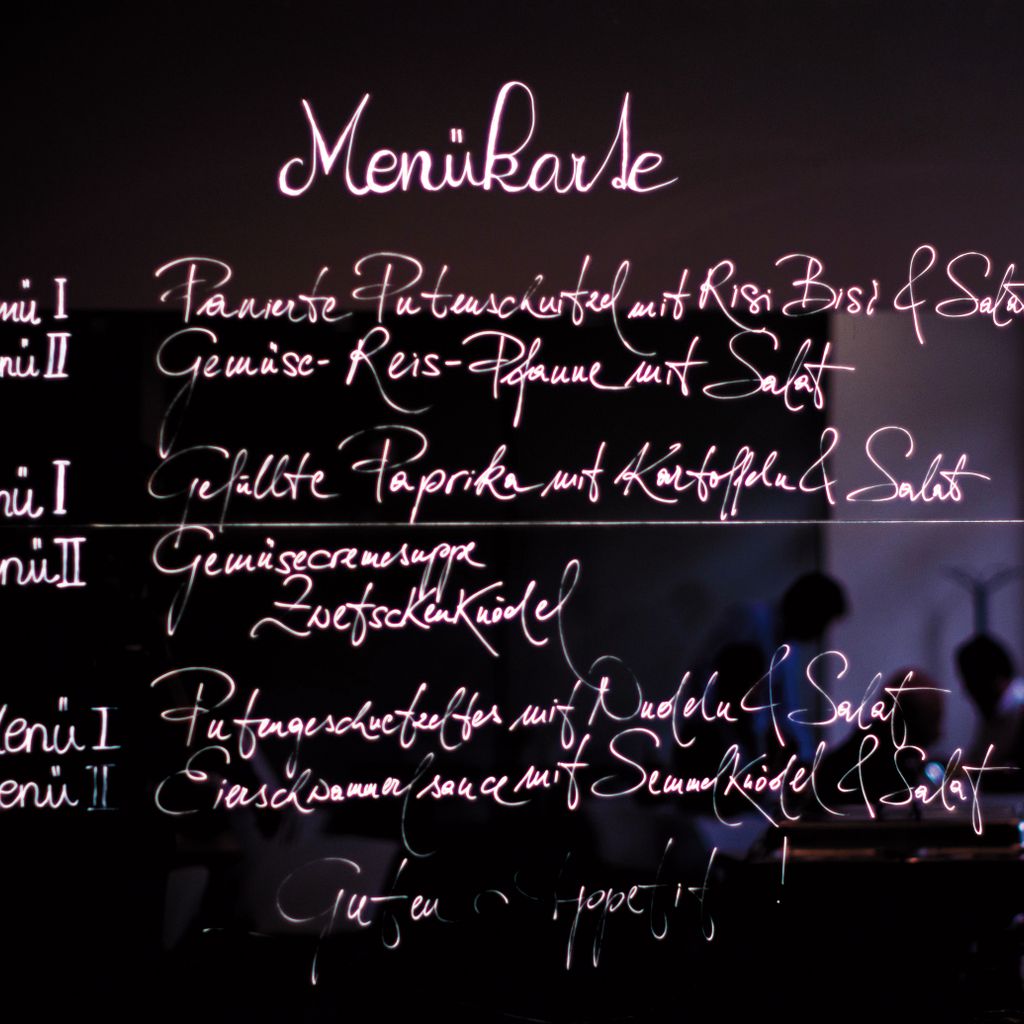 Menükarte
nü I Panierte Putenschnitzel mit Risi Bisi & Salat
nü II Gemüse-Reis-Pfanne mit Salat
nü I Gefüllte Paprika mit Kartoffeln & Salat
nü II Gemüsecremesuppe
Zwetschkenknödel
enü I Putengeschnetzeltes mit Nudeln & Salat
enü II Eierschwammerlsauce mit Semmelknödel & Salat
Guten Appetit !